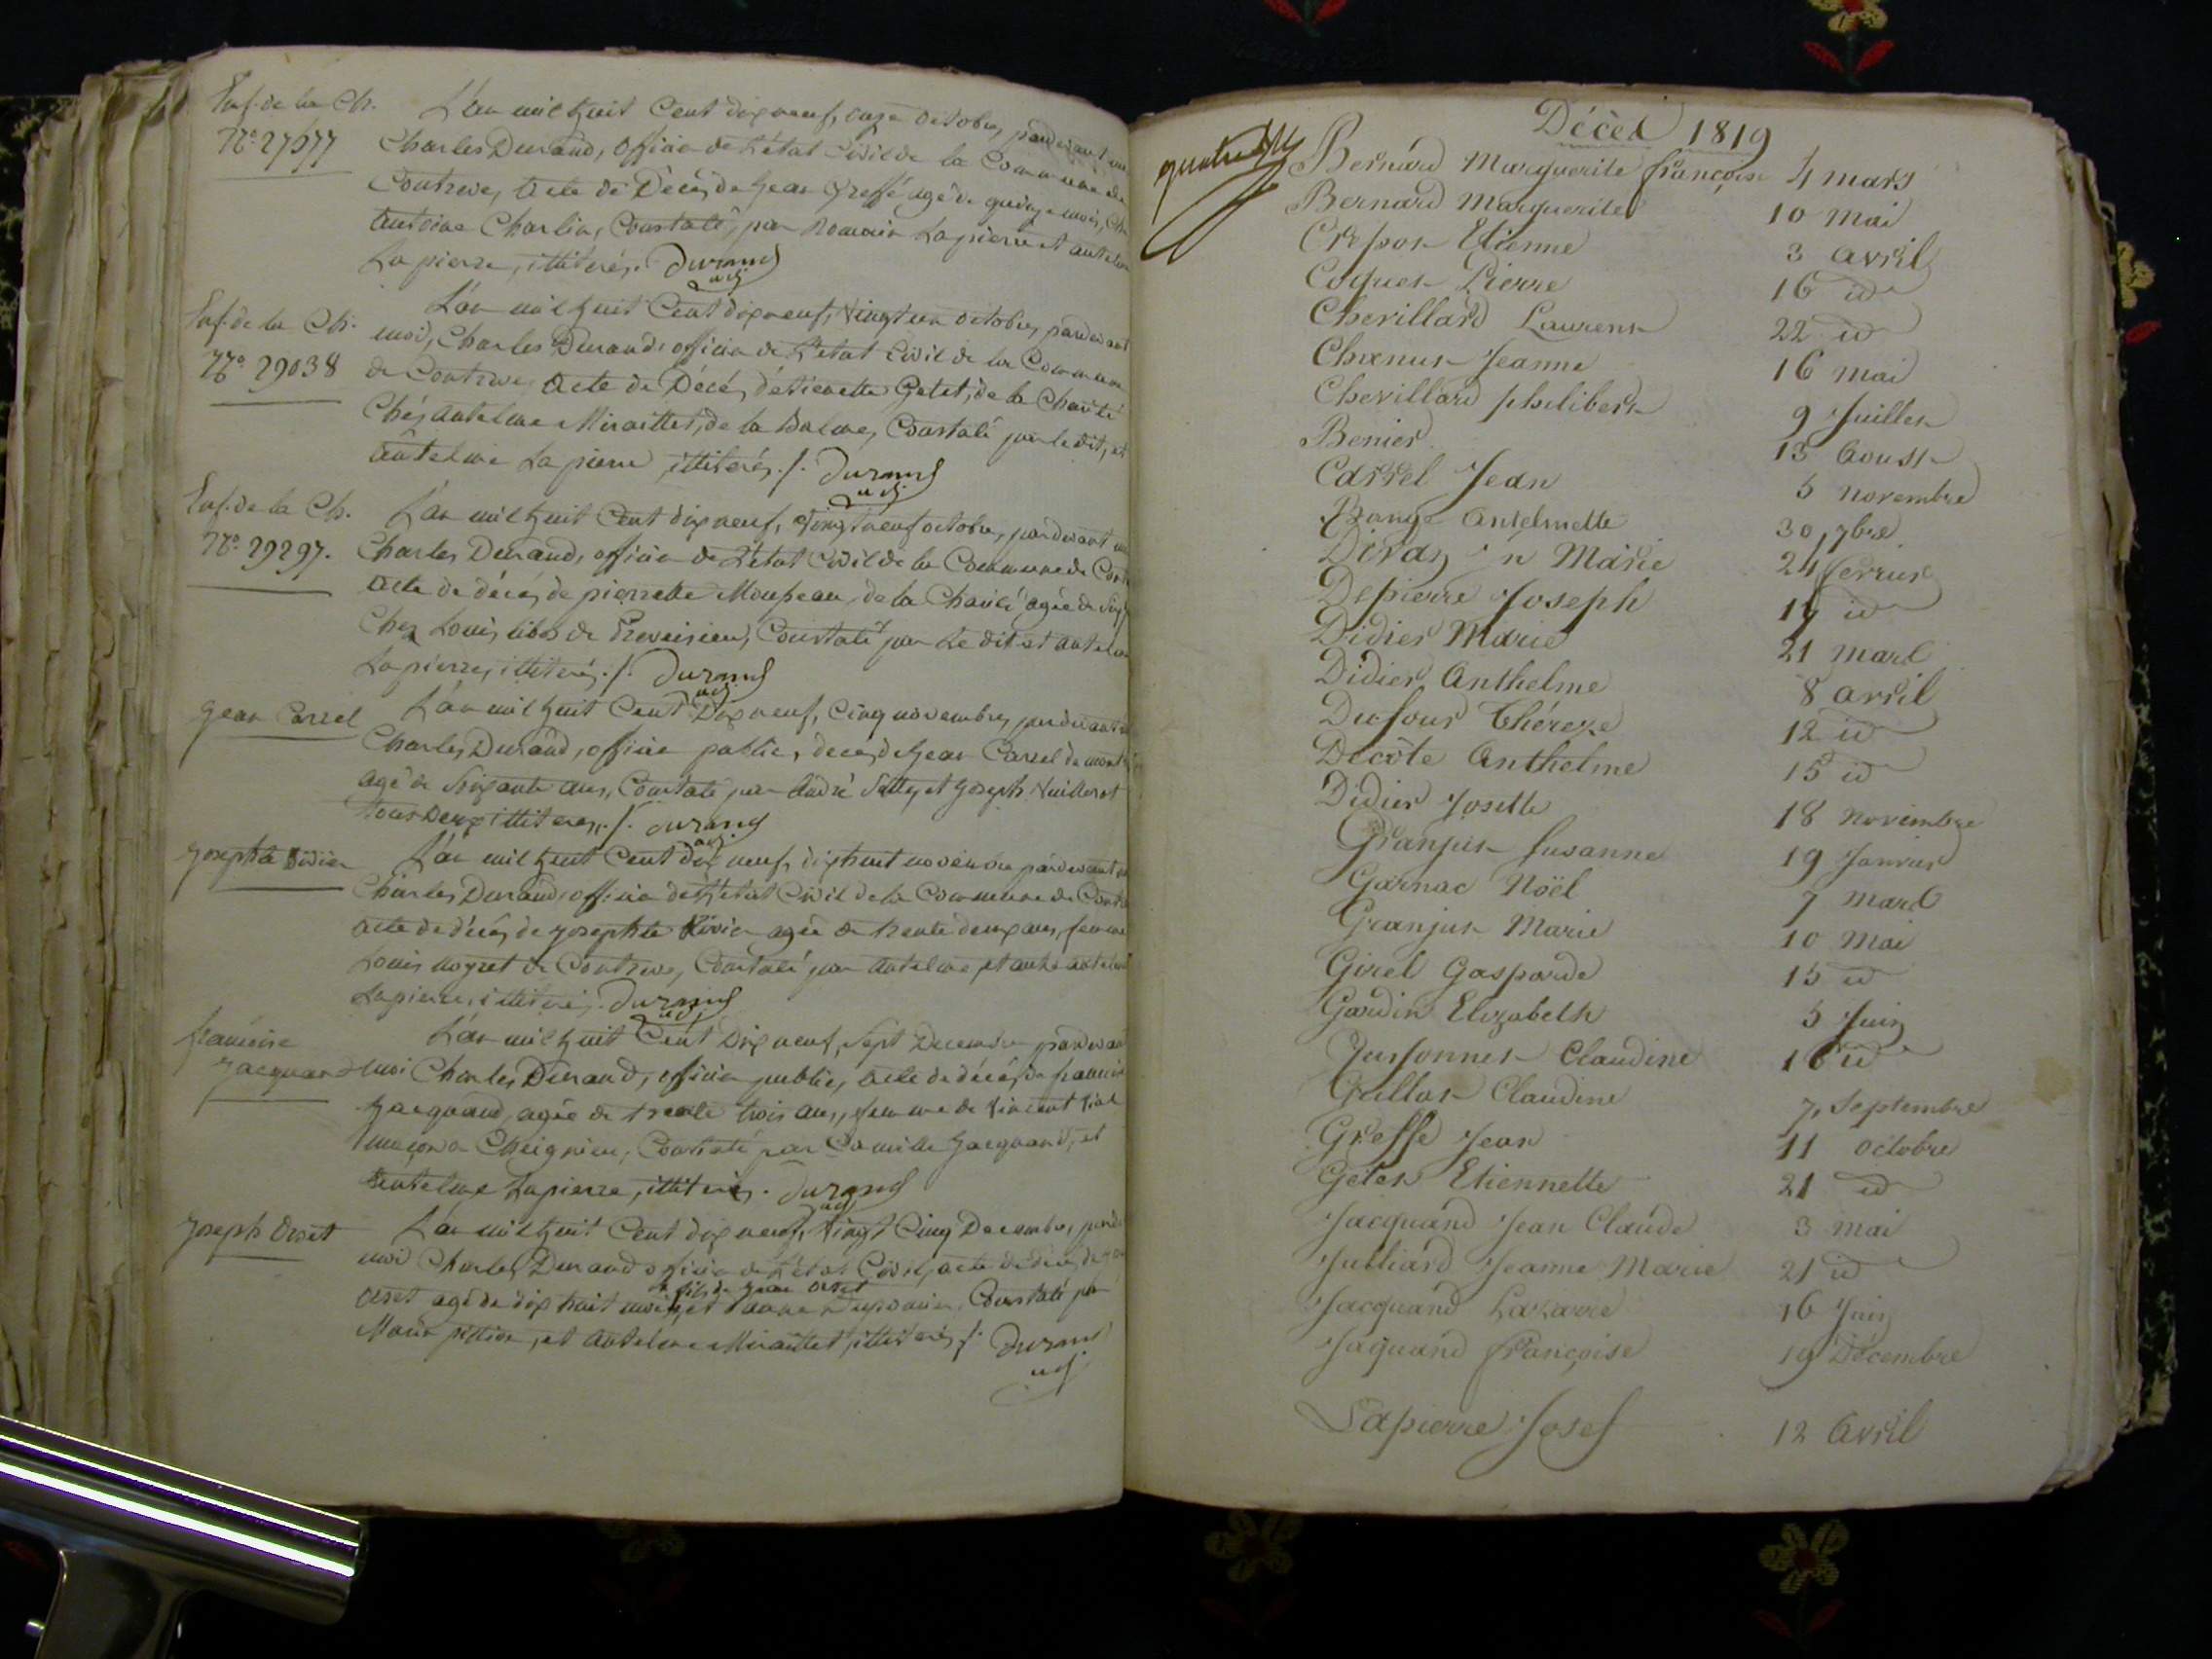 Enf. de la Ch.
N.o 27577
L'an mil huit Cent dix neuf, onze octobre, pardevant
Charles Durand, officier de L'état Civil de la Commune de
Contrevoz, Acte de Décès de Jean Greffe agé de quinze mois, Ch
antoine Charlin, Constaté, par Romain Lapierre et antelme
Lapierre, illiterés. Durand
adj.
Enf. de la Ch.
N.o 29038
L'an mil huit Cent dix neuf, vingt un octobre, pardevant
moi, Charles Durand, officier de L'état Civil de la Commune
de Contrevoz, Acte de Décès d'étiennette Getet, de la Charité
Chés antelme Miraillet, de la balme, Constaté par le dit, et
antelme Lapierre illiterés ./. Durand
adj.
Enf. de la Ch.
N.o 29297.
L'an mil huit Cent dix neuf, vingt neuf octobre, pardevant
Charles Durand, officier de L'état Civil de la Commune de Cont
acte de décès de pierrette Mousseau, de la Charité agée de
Chez Louis de Preveisieu, Constaté par Le dit et antelme
Lapierre, illiterés ./. Durand
adj.
Jean Carrel
L'an mil huit Cent Dix neuf, Cinq novembre, pardevant
Charles Durand, officier public, décès de Jean Carrel de mont
agé de Soixante ans, Constaté par André et Joseph Vuillerot
tous Deux illiterés ./. Durand
adj.
Josephte Didier
L'an mil huit Cent dix neuf, dix huit novembre pardevant
Charles Durand, officier de L'état Civil de la Commune de Cont
acte de décès de Josephte Didier agée de trente deux ans, femme
Louis de Contrevoz, Constaté par antelme et autre antelme
Lapierre, illiterés. Durand
adj.
francoise
Jacquand
L'an mil huit Cent Dix neuf, Sept Decembre pardevant
moi Charles Durand, officier public, acte de décès, de francoise
Jacquand, agée de trente trois ans, femme de Vincent
maçon a Cheignieu, Constaté par Camille Jacquand, et
antelme Lapierre, illiterés. Durand
adj.
Joseph Orset
L'an mil huit Cent dix neuf, Vingt Cinq Decembre, parde
moi Charles Durand officier de L'état Civil, acte de décès de
fils de Jean Orset
Orset agé de dix huit mois, et Constaté par
Marin pillion, et antelme Miraillet, illiterés ./. Durand
adj.
Décès 1819
Bernard Marguerite françoise 4 mars
Bernard Marguerite 10 mai
Crespos Etienne 3 avril
Coques Pierre 16 id
Chevillard Laurent 22 id
Chanus Jeanne 16 mai
Chevillard philibert 9 Juillet
Benier 13 Aoust
Carrel Jean 5 novembre
Bange Antelmette 30, 7bre
Marie 24 fevrier
Depierre Joseph 19 id
Didier Marie 21 mars
Didier Anthelme 8 avril
Dufour Thérèze 12 id
Decôte Anthelme 15 id
Didier Josette 18 novembre
Granjus Susanne 19 Janvier
Garnac Noël 7 mars
Granjus Marie 10 Mai
Girel Gasparde 15 id
Gardin Elizabeth 5 Juin
Claudine 16 id
Gallas Claudine 7, Septembre
Greffe Jean 11 octobre
Getet Etiennette 21 id
Jacquand Jean Claude 3 mai
Julliard Jeanne Marie 21 id
Jacquand Lazarre 16 Juin
Jaquand françoise 19 Décembre
Lapierre Josef 12 Avril